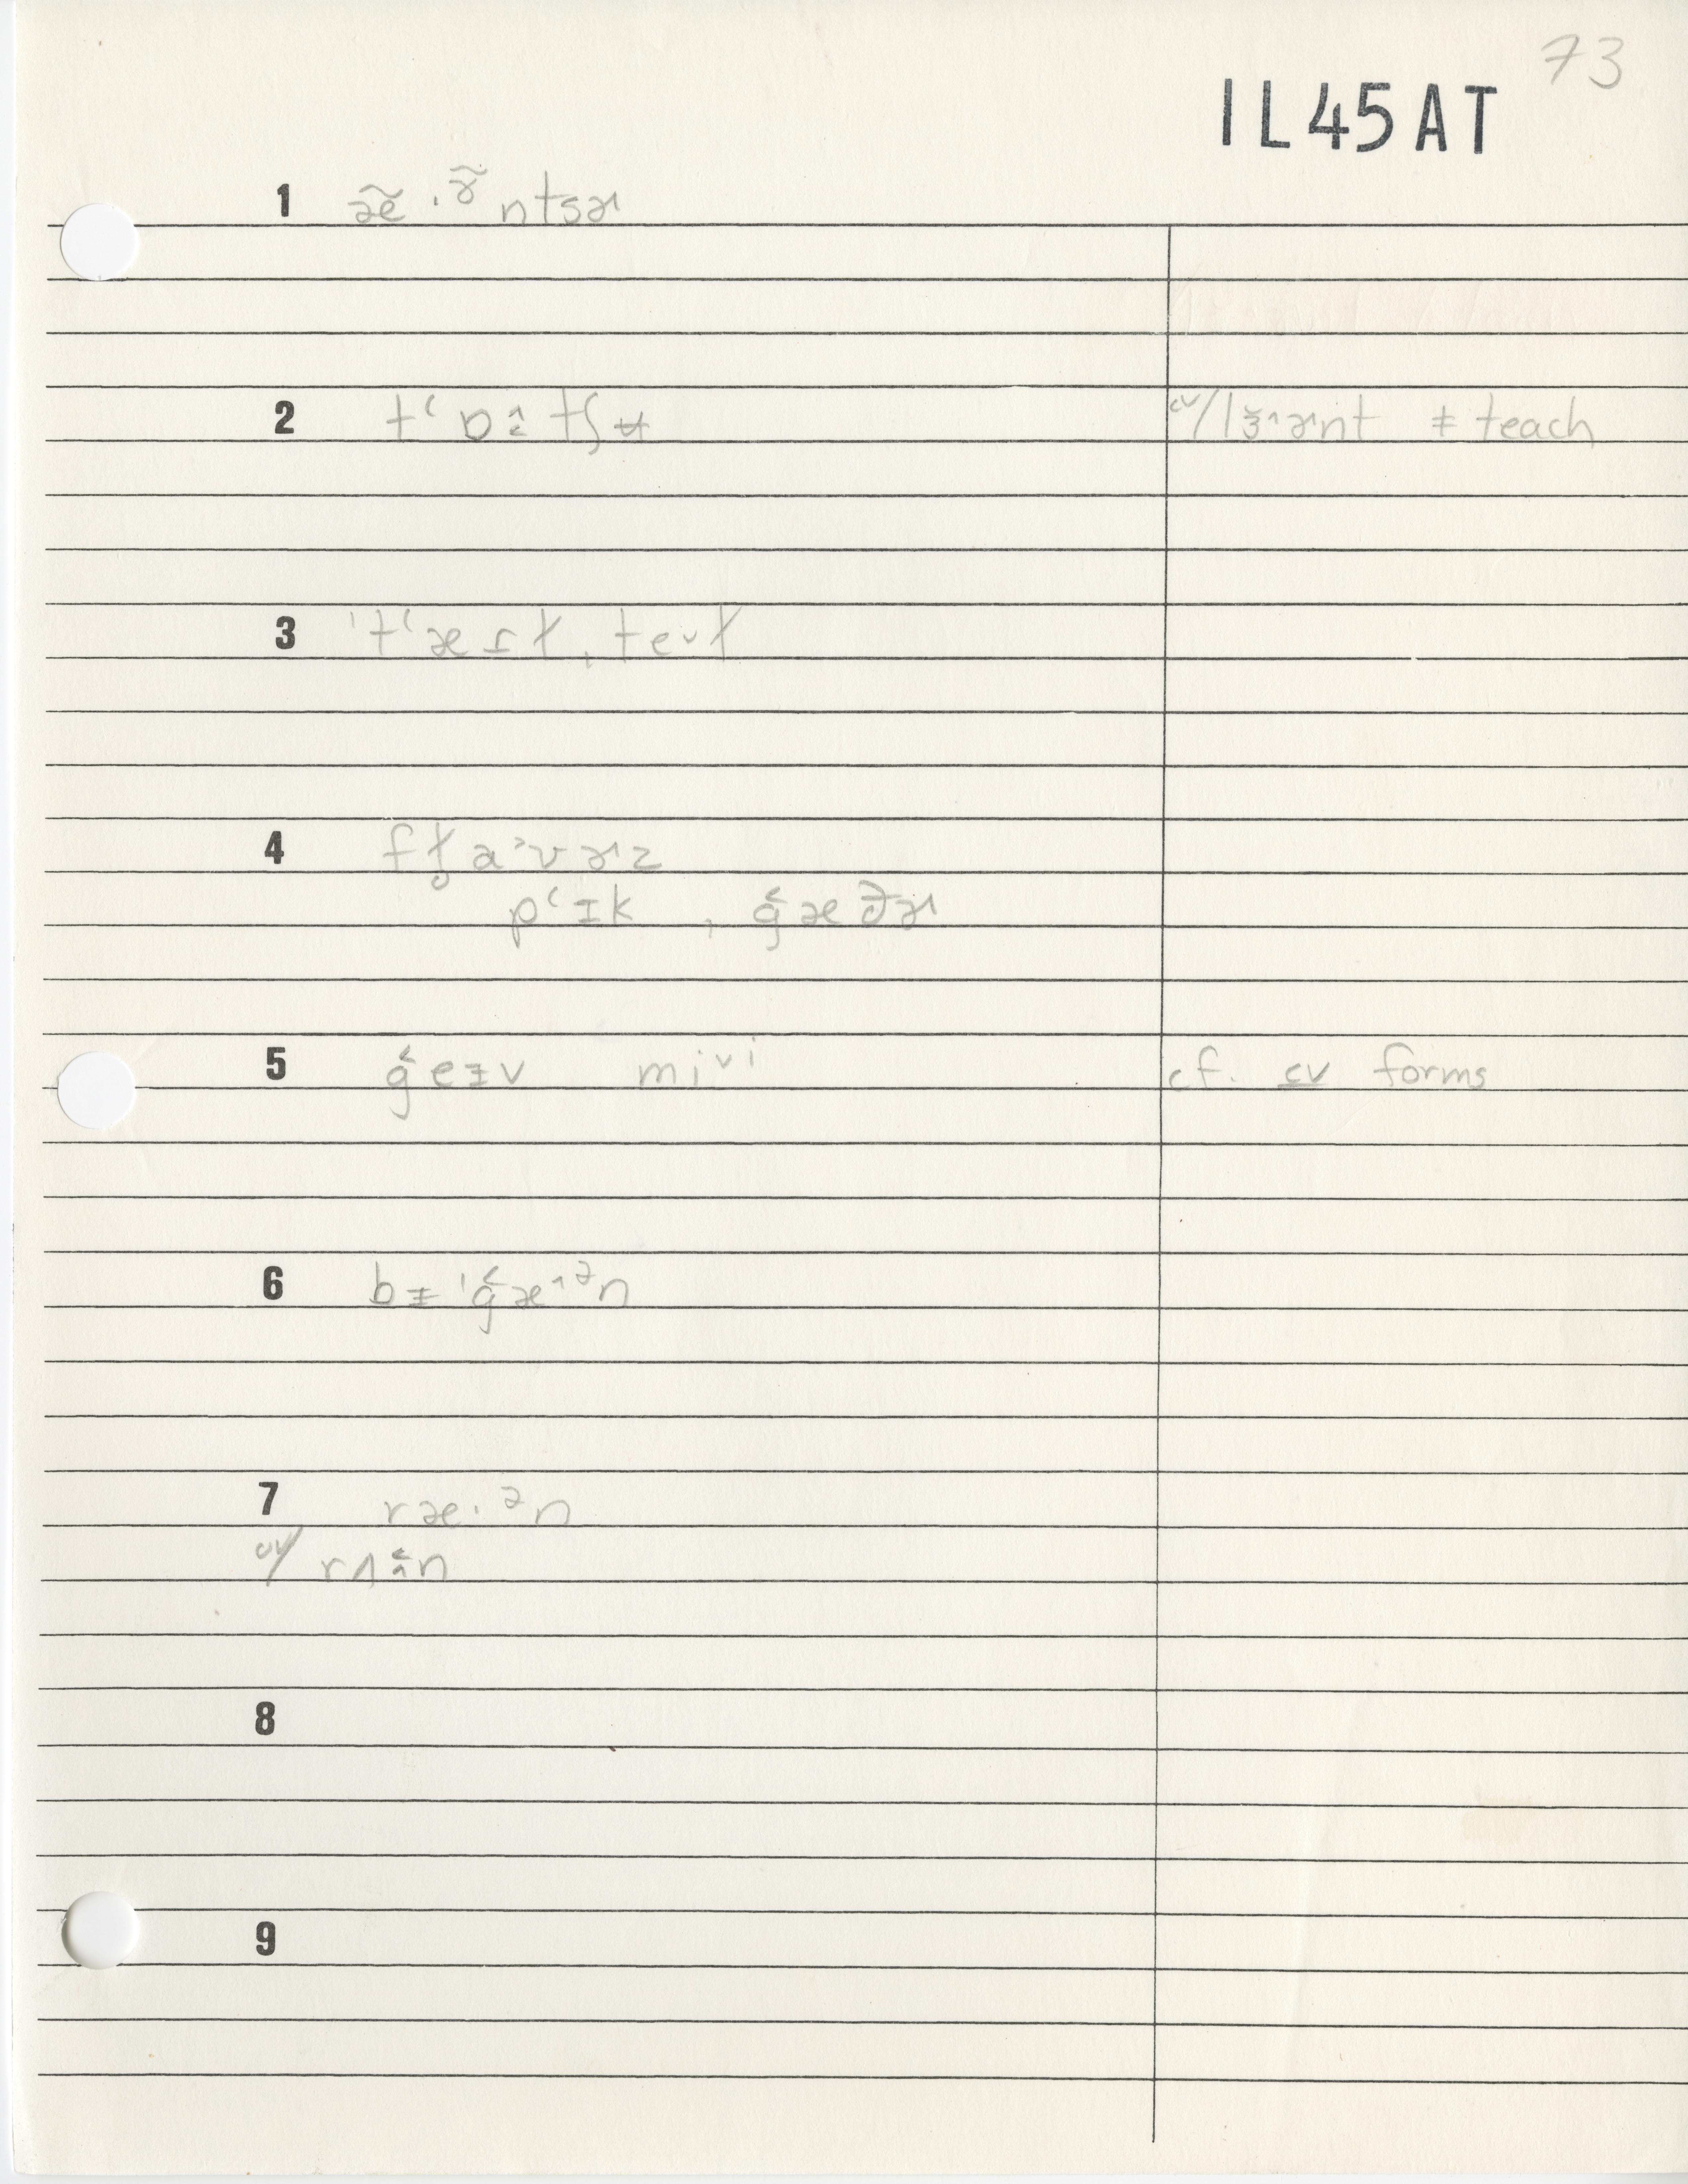 73
IL45AT
1 æ̃·ɚ̃ntsɚ
2 tʻɒ˄̣tʃʉ cv/lɜ˄ɚnt ≠ teach
3 ˈtʻæɪɫ, teᵛɫ
4 fɫ̥aᵊvɚz
pʻɪk, g̑æðɚ
5 g̑eɪv miᵛⁱ cf. cv forms
6 bɪˈg̑æ^ᵊn
7 ræ·ᵊn
cv/ rʌ˄n
8
9